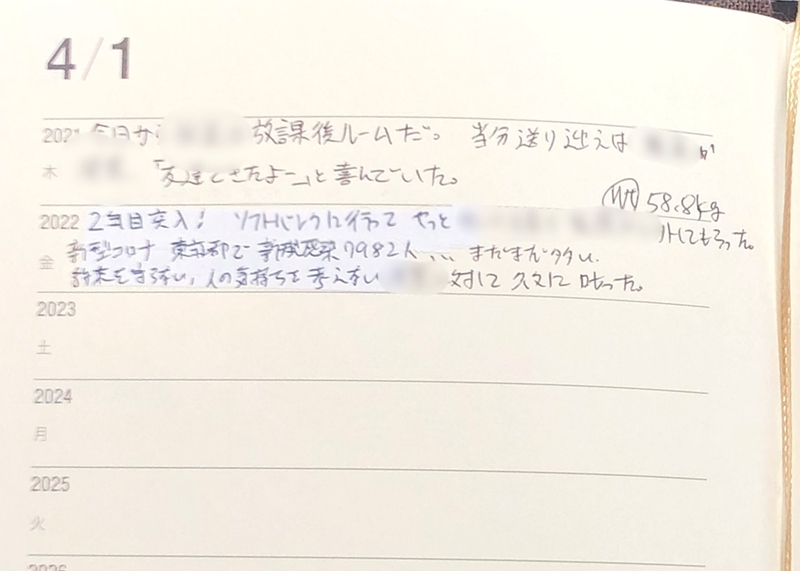 4/1
2021 今日から 放課後ルームだ。 当分送り迎えは が
木 「友達できたよー」と喜んでいた。
Wt 58.8kg
2022 2年目突入! ソフトバンクに行って やっと してもらった。
新型コロナ 東京都で新規感染7982人... まだまだ多い。
金 約束を守らない, 人の気持ちを考えない 対して 久々に 叱った。
2023
土
2024
月
2025
火